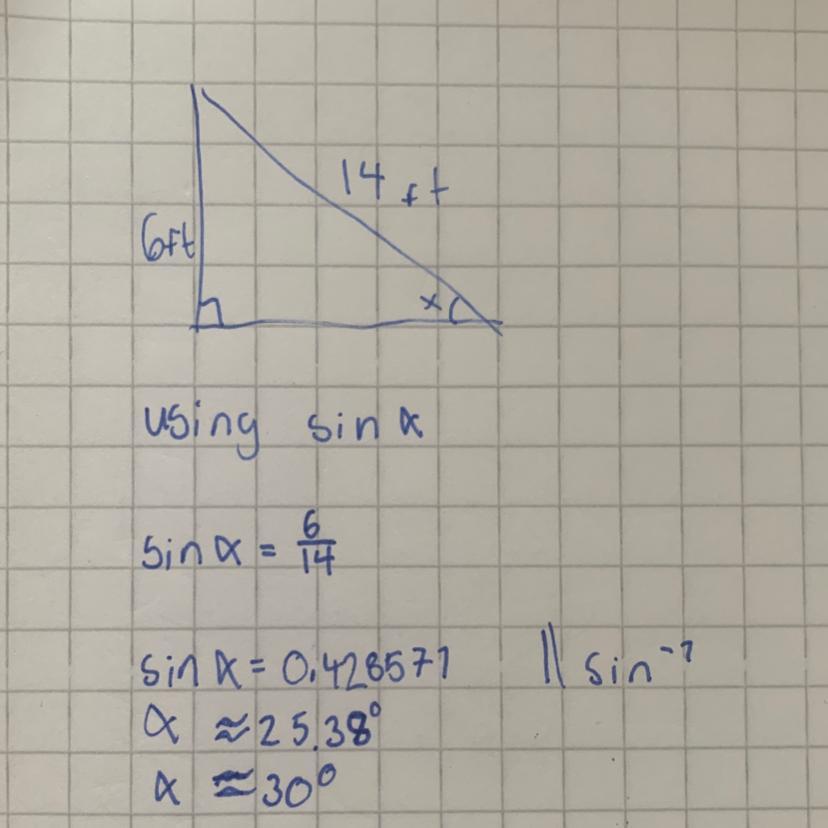 14 ft
6ft
x
using sin α
sin α = 6/14
sin α = 0.428571 || sin⁻¹
α ≈ 25.38°
α ≈ 30°